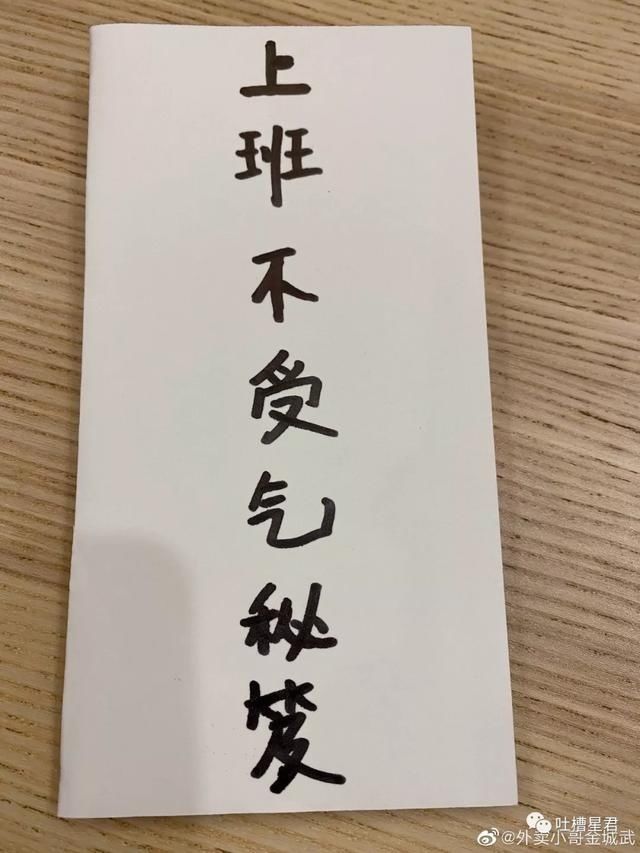 上班不受气秘笈
吐槽星君
@外卖小哥金城武